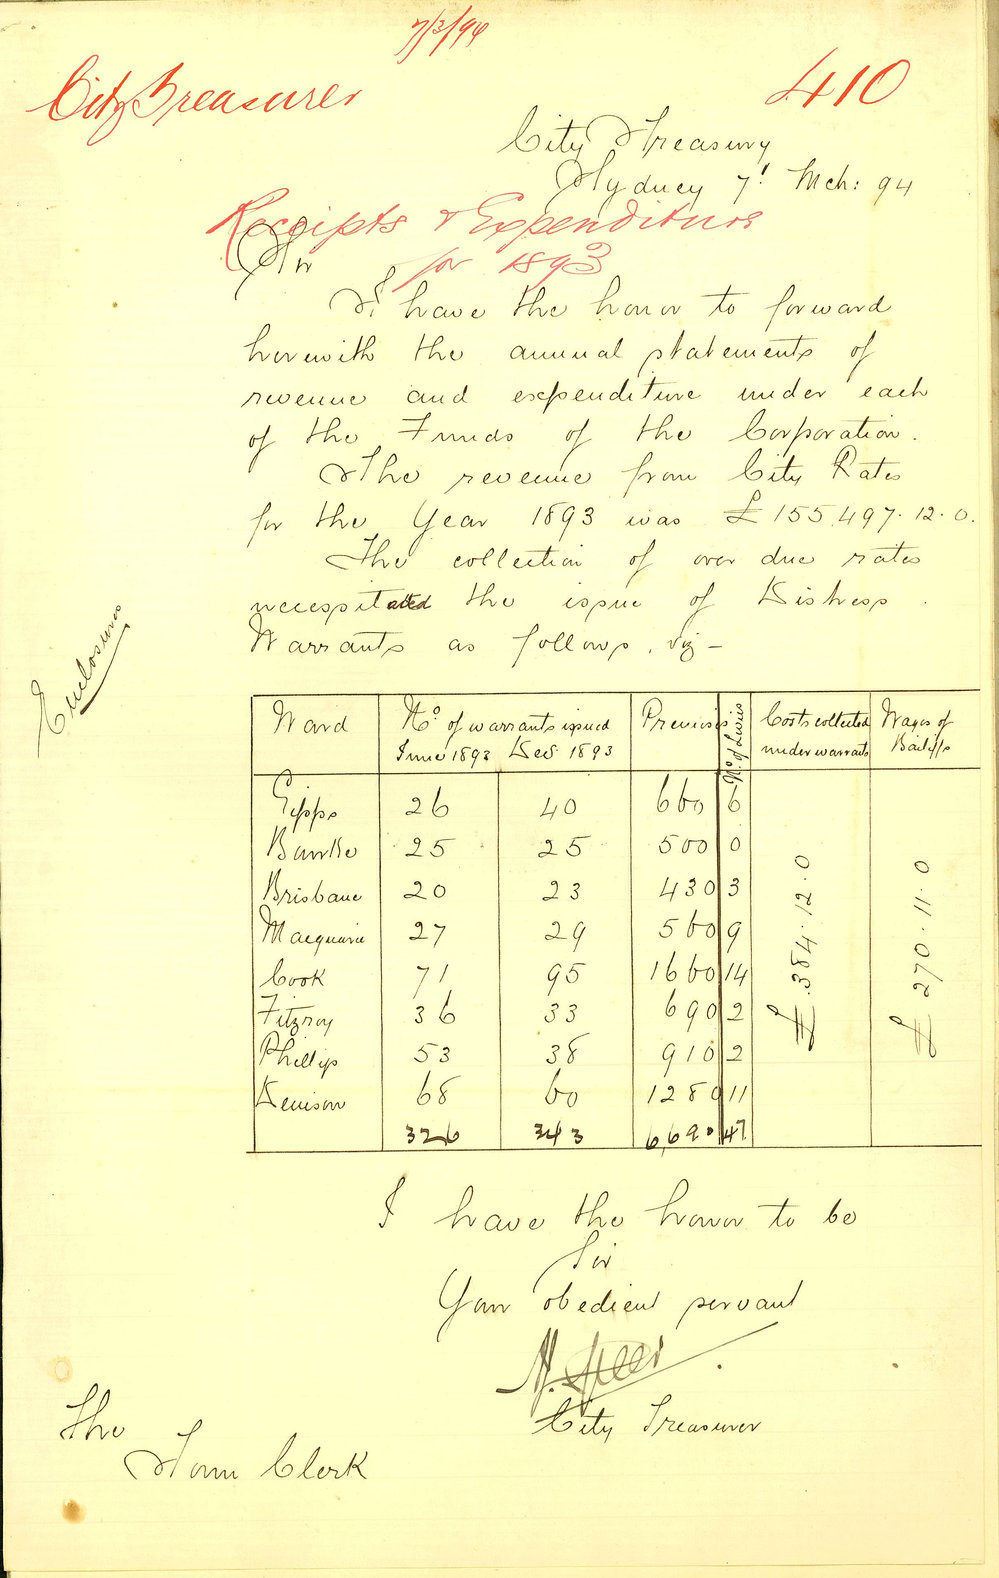 7/3/94
City Treasurer
410
City Treasury
Sydney 7' Mch: 94
Receipts & Expenditure
for 1893
Sir
I have the honor to forward
herewith the annual statements of
revenue and expenditure under each
of the Funds of the Corporation.
The revenue from City Rates
for the Year 1893 was £155,497.12.0.
The collection of over due rates
necessitated the issue of Distress
Warrants as follows, viz -
Enclosures
Ward No. of warrants issued Previous No. of Levies Costs collected Wages of
June 1893 Dec 1893 under warrants Bailiffs
Gipps 26 40 660 6
Bourke 25 25 500 0
Brisbane 20 23 430 3
Macquarie 27 29 560 9
Cook 71 95 1660 14
Fitzroy 36 33 690 2
Phillip 53 38 910 2
Denison 68 60 1280 11
326 343 6,690 47
£384.12.0
£270.11.0
I have the honor to be
Sir
Your obedient servant
City Treasurer
The
Town Clerk